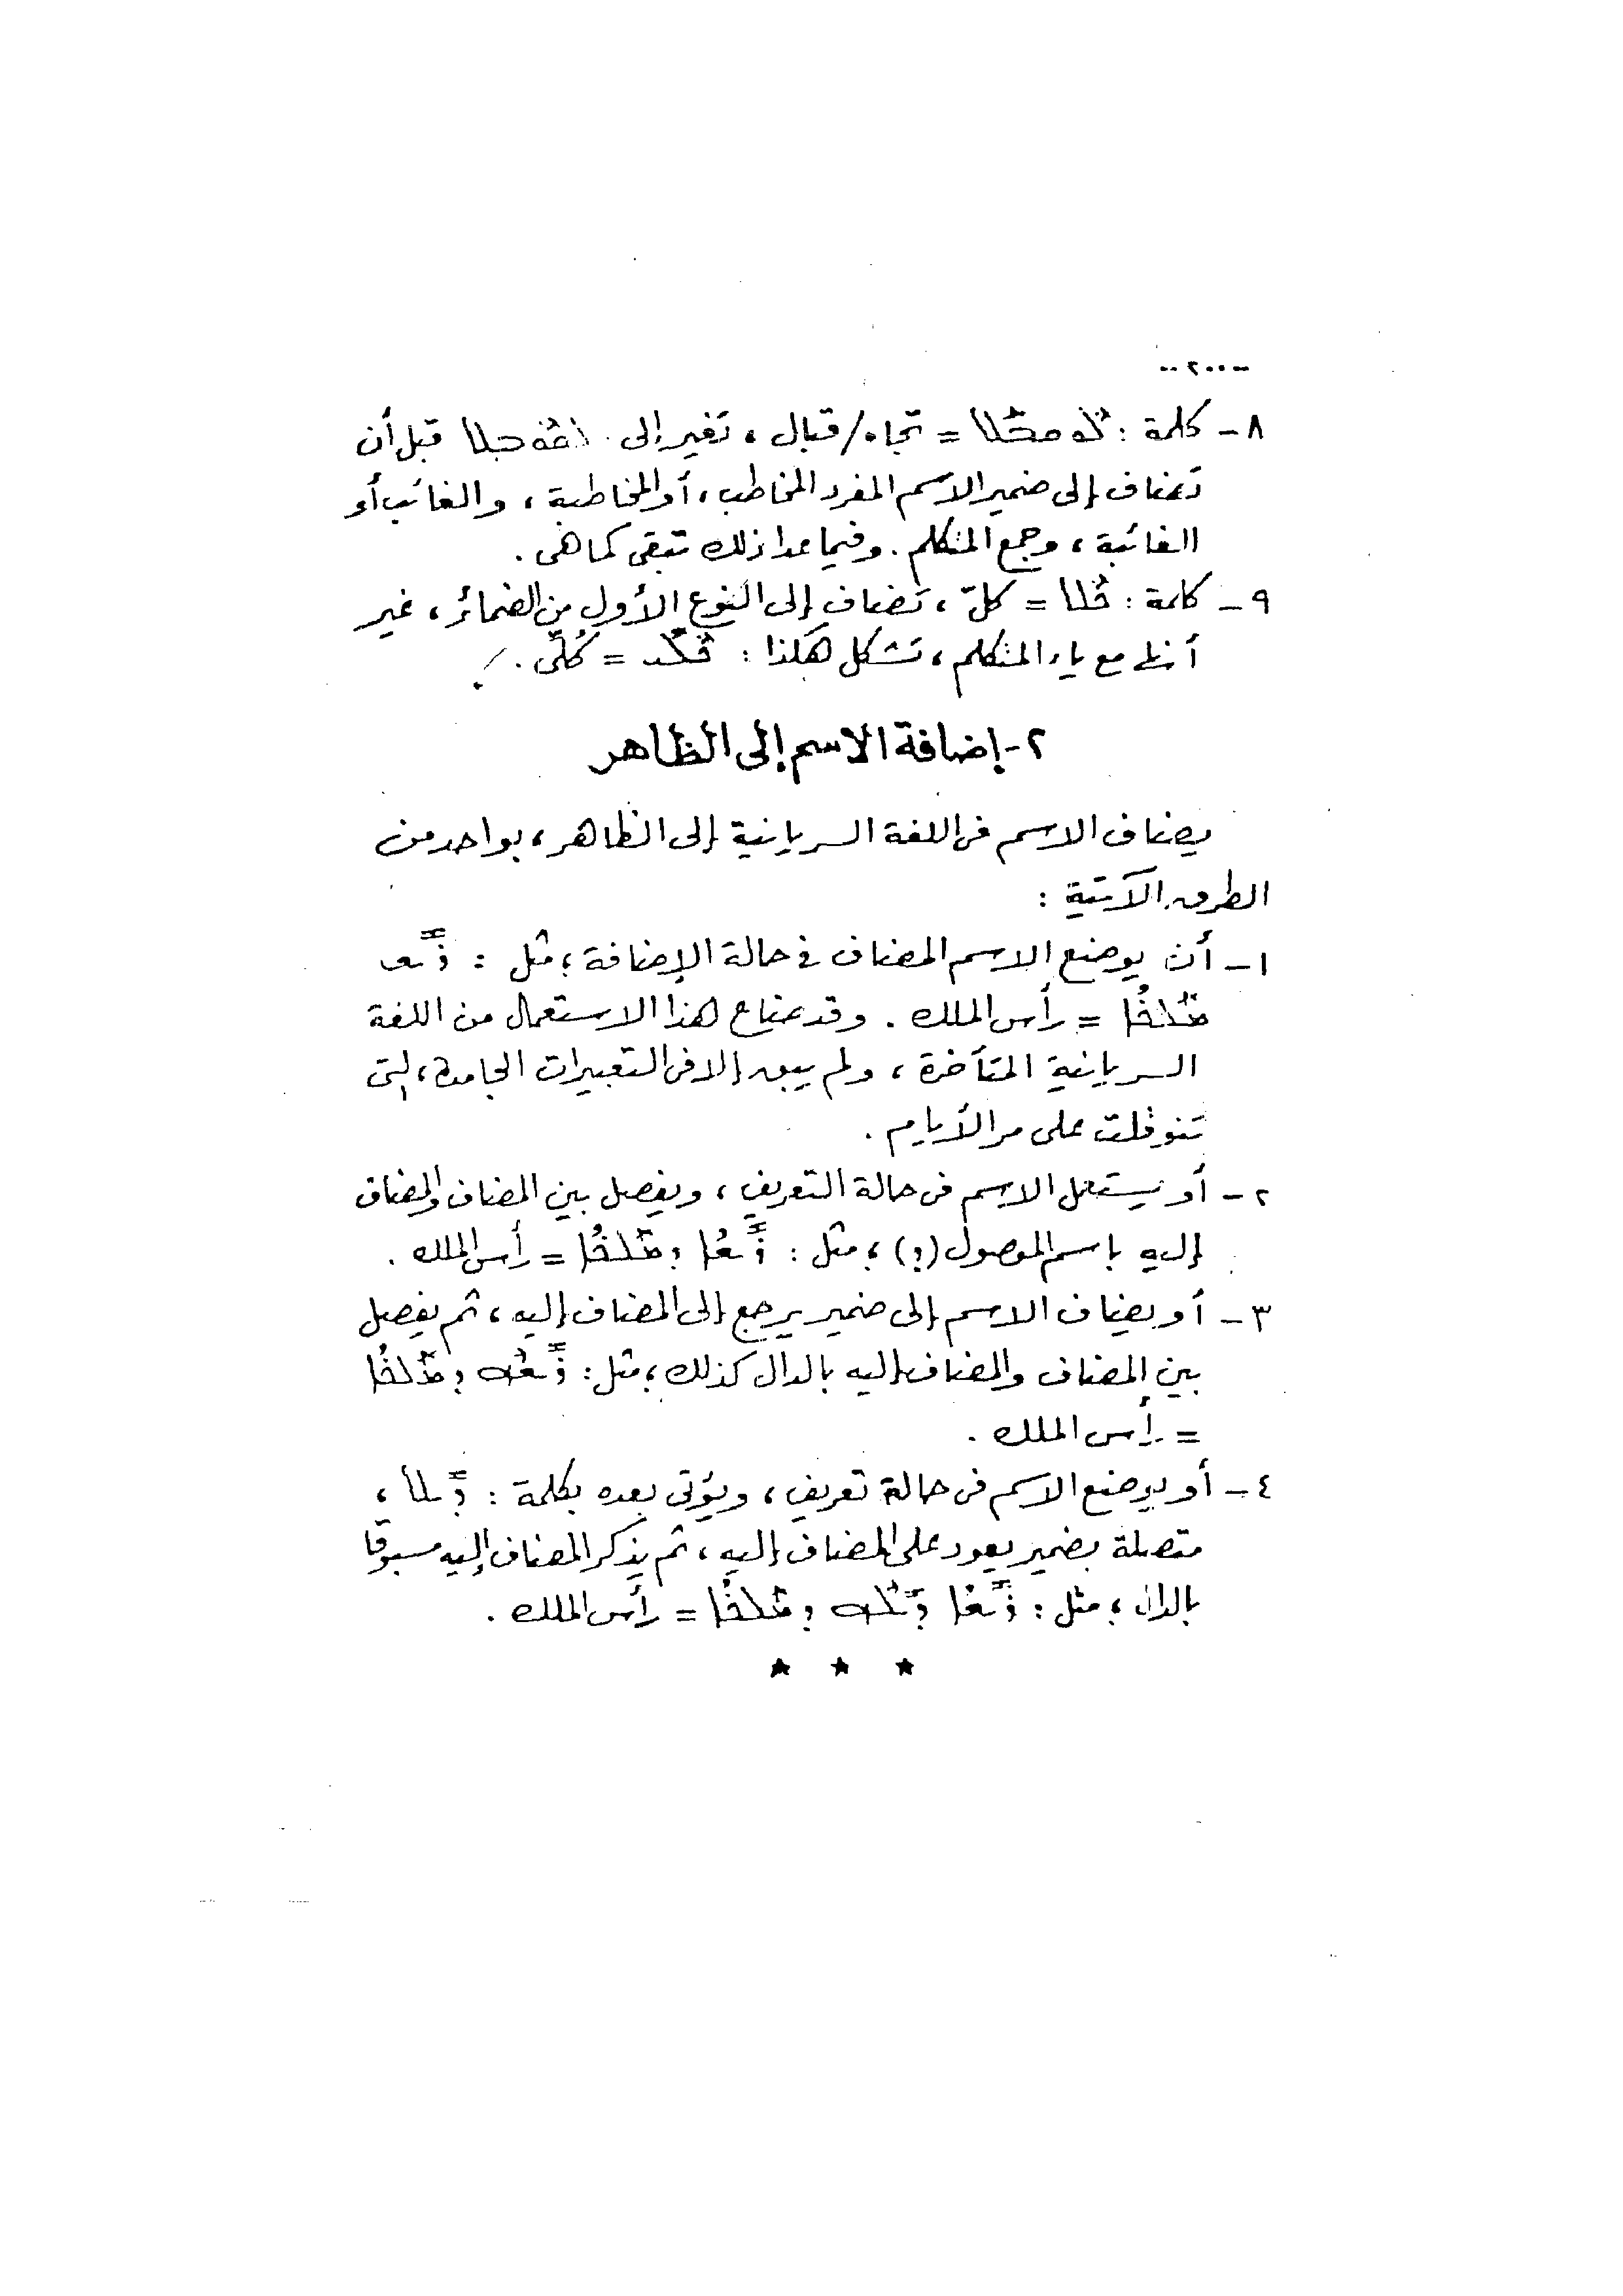 -- ٢٠٠ --
٨ - كلمة : ܠܘܩܒܠ = تجاه / قبال ، تغير إلى ܠܩܘܒܠ قبل أن
تضاف إلى ضمير الاسم المفرد المخاطب ، أو المخاطبة ، والغائب أو
الغائبة ، وجمع المتكلم . وفيما عدا ذلك تبقى كما هى .
٩ - كلمة : ܟܠ = كلّ ، تضاف إلى النوع الأول من الضمائر ، غير
أنها مع ياء المتكلم ، تشكل هكذا : ܟܠܝ = كُلّى .
٢ - إضافة الاسم إلى الظاهر
يضاف الاسم فى اللغة السريانية إلى الظاهر ، بواحد من
الطرق الآتية :
١ - أن يوضع الاسم المضاف فى حالة الإضافة ؛ مثل : ܪܝܫ
ܡܠܟܐ = رأس الملك . وقد ضاع هذا الاستعمال من اللغة
السريانية المتأخرة ، ولم يبق إلا فى التعبيرات الجامدة ، التى
تنوقلت على مر الأيام .
٢ - أو يستعمل الاسم فى حالة التعريف ، ويفصل بين المضاف والمضاف
إليه باسم الموصول ( ܕ ) ؛ مثل : ܪܝܫܐ ܕܡܠܟܐ = رأس الملك .
٣ - أو يضاف الاسم إلى ضمير يرجع إلى المضاف إليه ، ثم يفصل
بين المضاف والمضاف إليه بالدال كذلك ؛ مثل : ܪܝܫܗ ܕܡܠܟܐ
= رأس الملك .
٤ - أو يوضع الاسم فى حالة تعريف ، ويؤتى بعده بكلمة : ܕܝܠ ،
متصلة بضمير يعود على المضاف إليه ، ثم يذكر المضاف إليه مسبوقا
بالدال ؛ مثل : ܪܝܫܐ ܕܝܠܗ ܕܡܠܟܐ = رأس الملك .
★ ★ ★